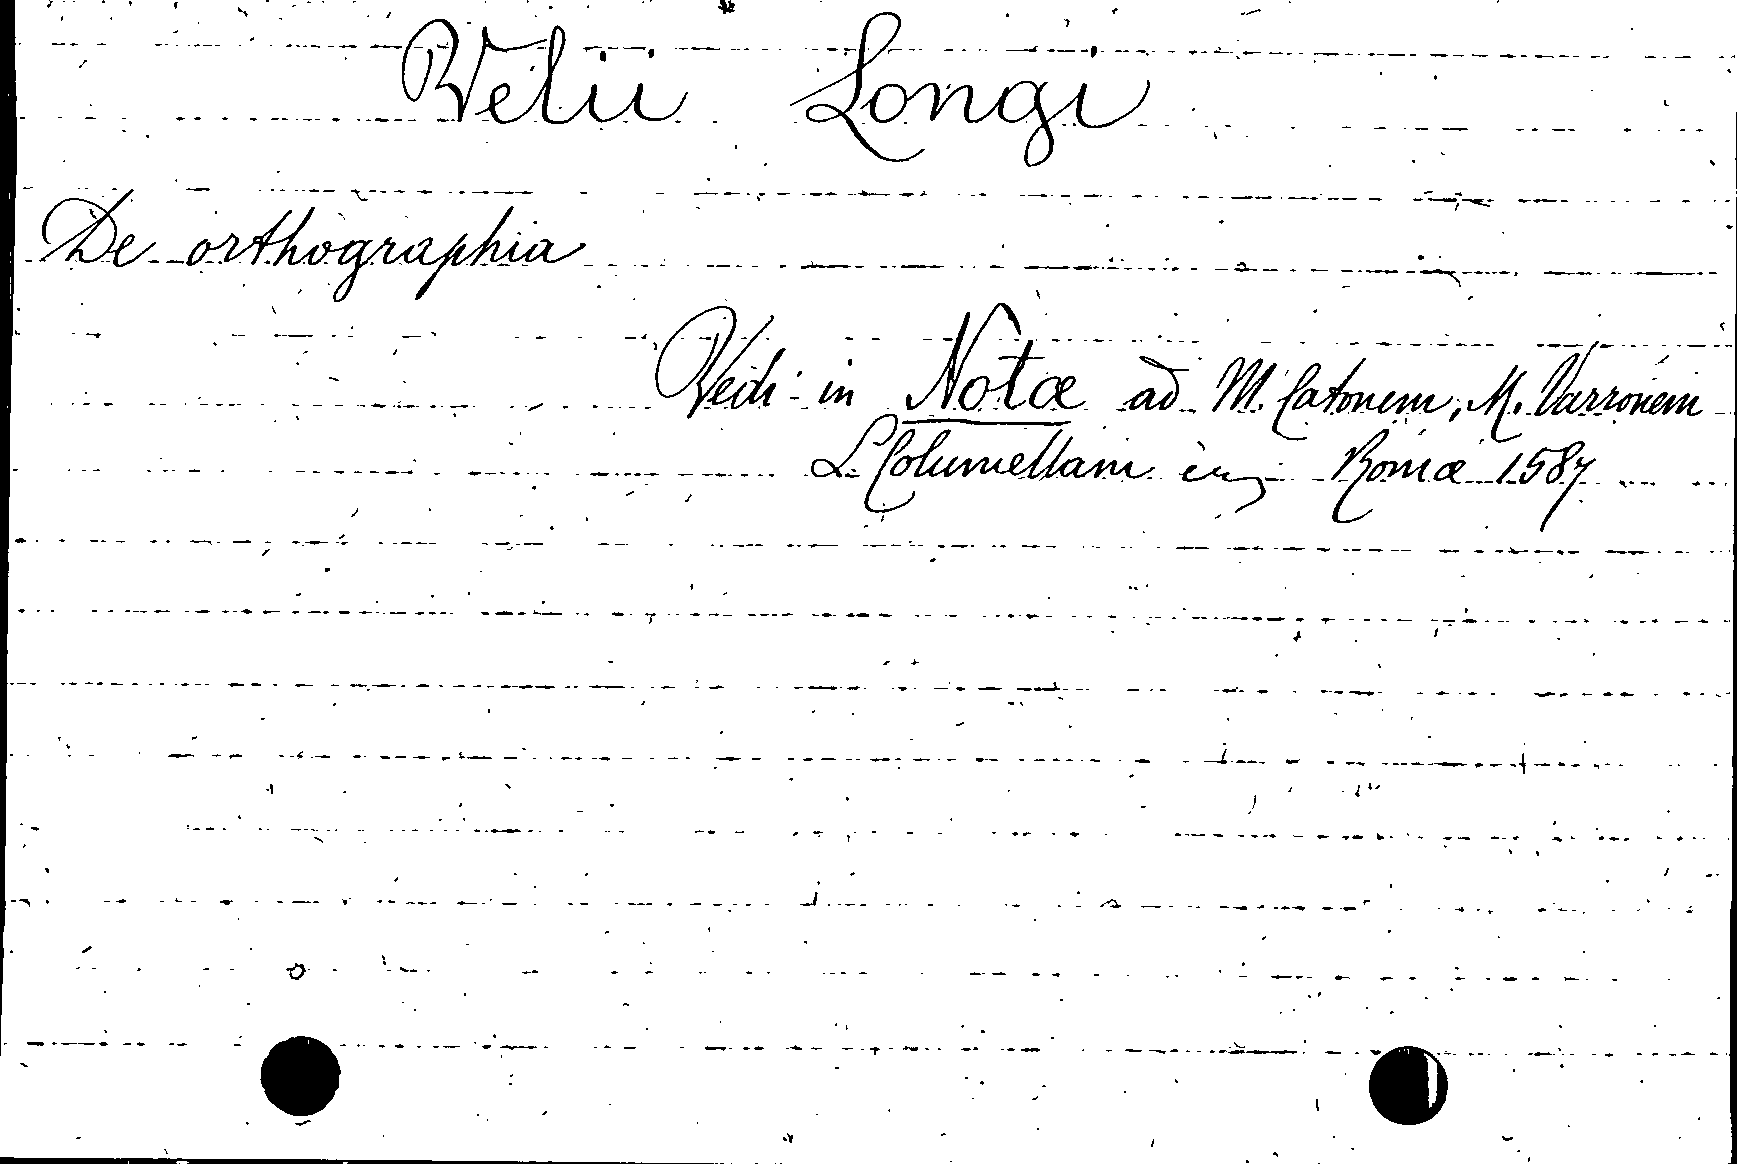 Velii Longi
De orthographia
Vedi in Notæ ad M. Catonem, M. Varronem
L. Columellam Romæ 1587